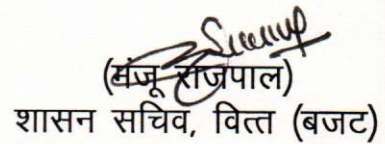 (मंजू राजपाल)
शासन सचिव, वित्त (बजट)